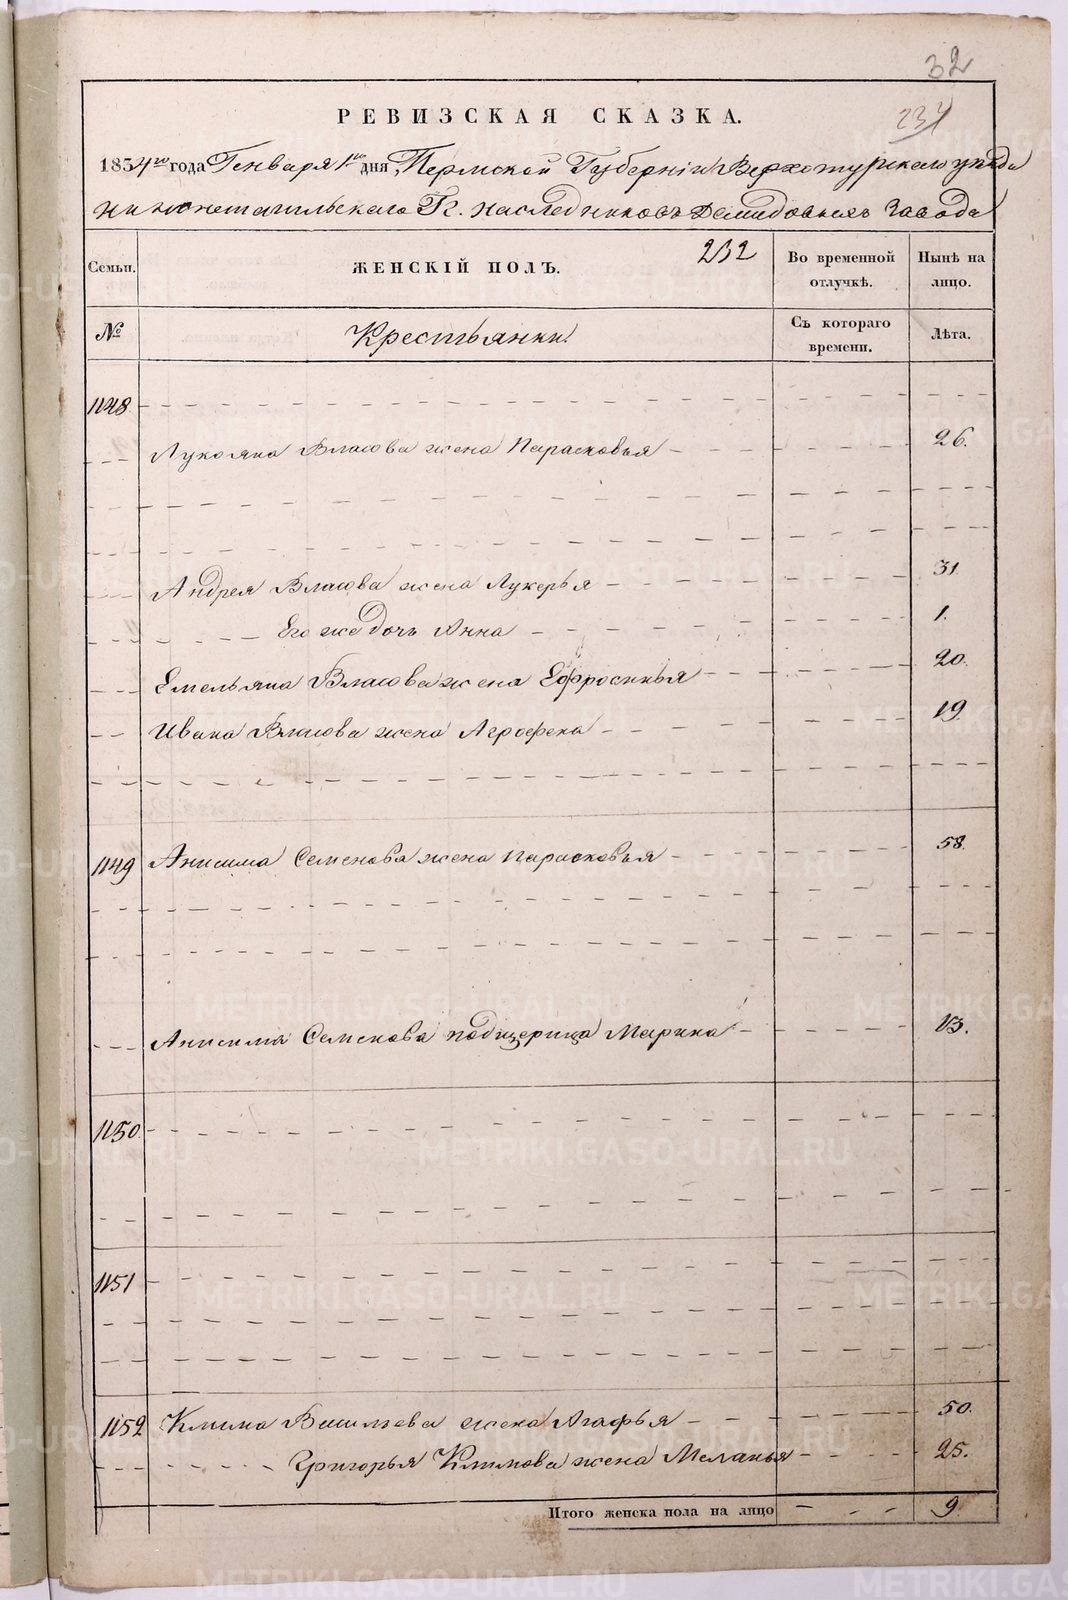 32
РЕВИЗСКАЯ СКАЗКА.
234
1834го года Генваря 1го дня, Пермской Губерніи Верхотурскаго уезда
нижнетагильскаго Г. наследниковъ Демидовыхъ Завода
Семьи. ЖЕНСКІЙ ПОЛЪ. 232 Во временной отлучкѣ. Нынѣ на лицо.
№ Крестьянки! Съ котораго времени. Лѣта.
1148
Лукояна Власова жена Парасковья 26.
Андрея Власова жена Лукерья 31.
Его же дочь Анна 1.
Емельяна Власова жена Ефросинья 20.
Ивана Власова жена Агрофена 19.
1149 Анисима Семенова жена Парасковья 58.
Анисима Семенова падщерица Марина 13.
1150
1151
1152 Клима Васильева жена Агафья 50.
Григорья Климова жена Меланья 25.
Итого женска пола на лицо 9
METRIKI.GASO-URAL.RU